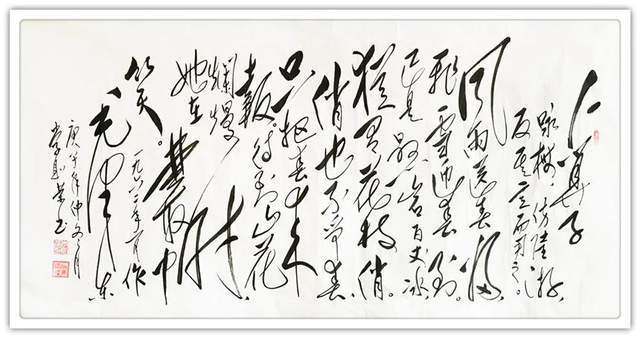 卜算子
咏梅，仿陆游，
反其意而用之。
风雨送春归，
飞雪迎春到。
已是悬崖百丈冰，
犹有花枝俏。
俏也不争春，
只把春来
報。待到山花
爛熳时，
她在叢中
笑。
一九六二年一月作
毛泽东